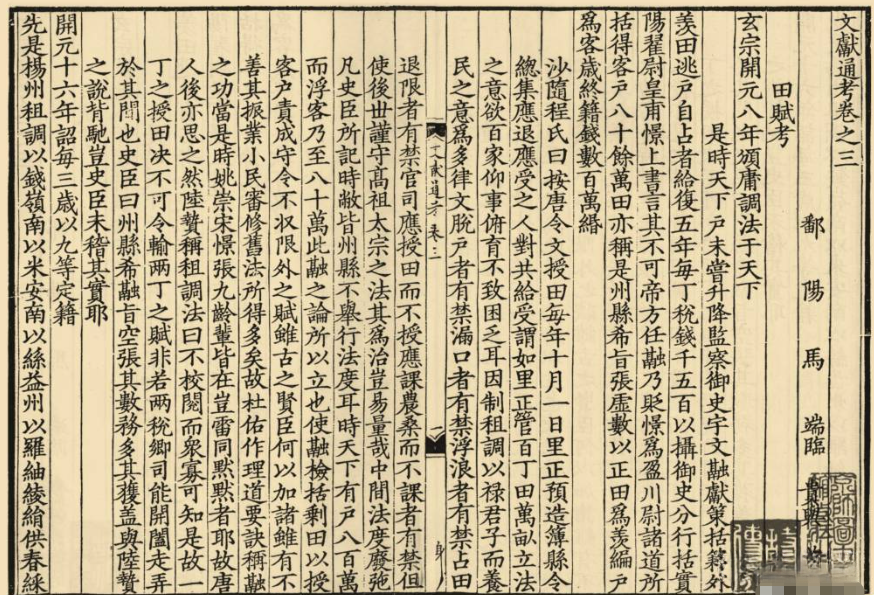 文獻通考卷之三
鄱陽馬端臨貴與著
田賦考
玄宗開元八年頒庸調法于天下
是時天下戶未嘗升降監察御史宇文融獻策括籍外
羨田逃戶自占者給復五年每丁稅錢千五百以攝御史分行括實
陽翟尉皇甫憬上書言其不可帝方任融乃貶憬爲盈川尉諸道所
括得客戶八十餘萬田亦稱是州縣希旨張虛數以正田爲羨編戶
爲客歲終籍錢數百萬緡
沙隨程氏曰按唐令文授田每年十月一日里正預造簿縣令
總集應退應受之人對共給受謂如里正管百丁田萬畝立法
之意欲百家仰事俯育不致困乏耳因制租調以祿君子而養
民之意爲多律文脫戶者有禁漏口者有禁浮浪者有禁占田
文獻通考卷三
一
退限者有禁官司應授田而不授應課農桑而不課者有禁但
使後世謹守高祖太宗之法其爲治豈易量哉中間法度廢弛
凡史臣所記時敝皆州縣不舉行法度耳時天下有戶八百萬
而浮客乃至八十萬此融之論所以立也使融檢括剩田以授
客戶責成守令不收限外之賦雖古之賢臣何以加諸雖有不
善其振業小民審修舊法所得多矣故杜佑作理道要訣稱融
之功當是時姚崇宋憬張九齡輩皆在豈雷同默默者耶故唐
人後亦思之然陸贄稱租調法曰不校閱而衆寡可知是故一
丁之授田決不可令輸兩丁之賦非若兩稅鄉司能開闔走弄
於其間也史臣曰州縣希融旨空張其數務多其獲蓋與陸贄
之說背馳豈史臣未稽其實耶
開元十六年詔每三歲以九等定籍
先是揚州租調以錢嶺南以米安南以絲益州以羅紬綾絹供春綵